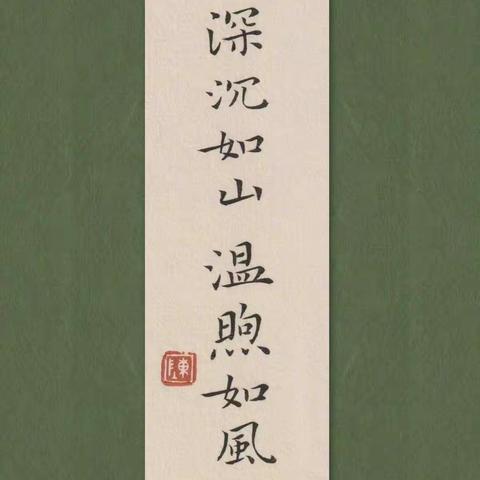 深沉如山 温煦如風
陳